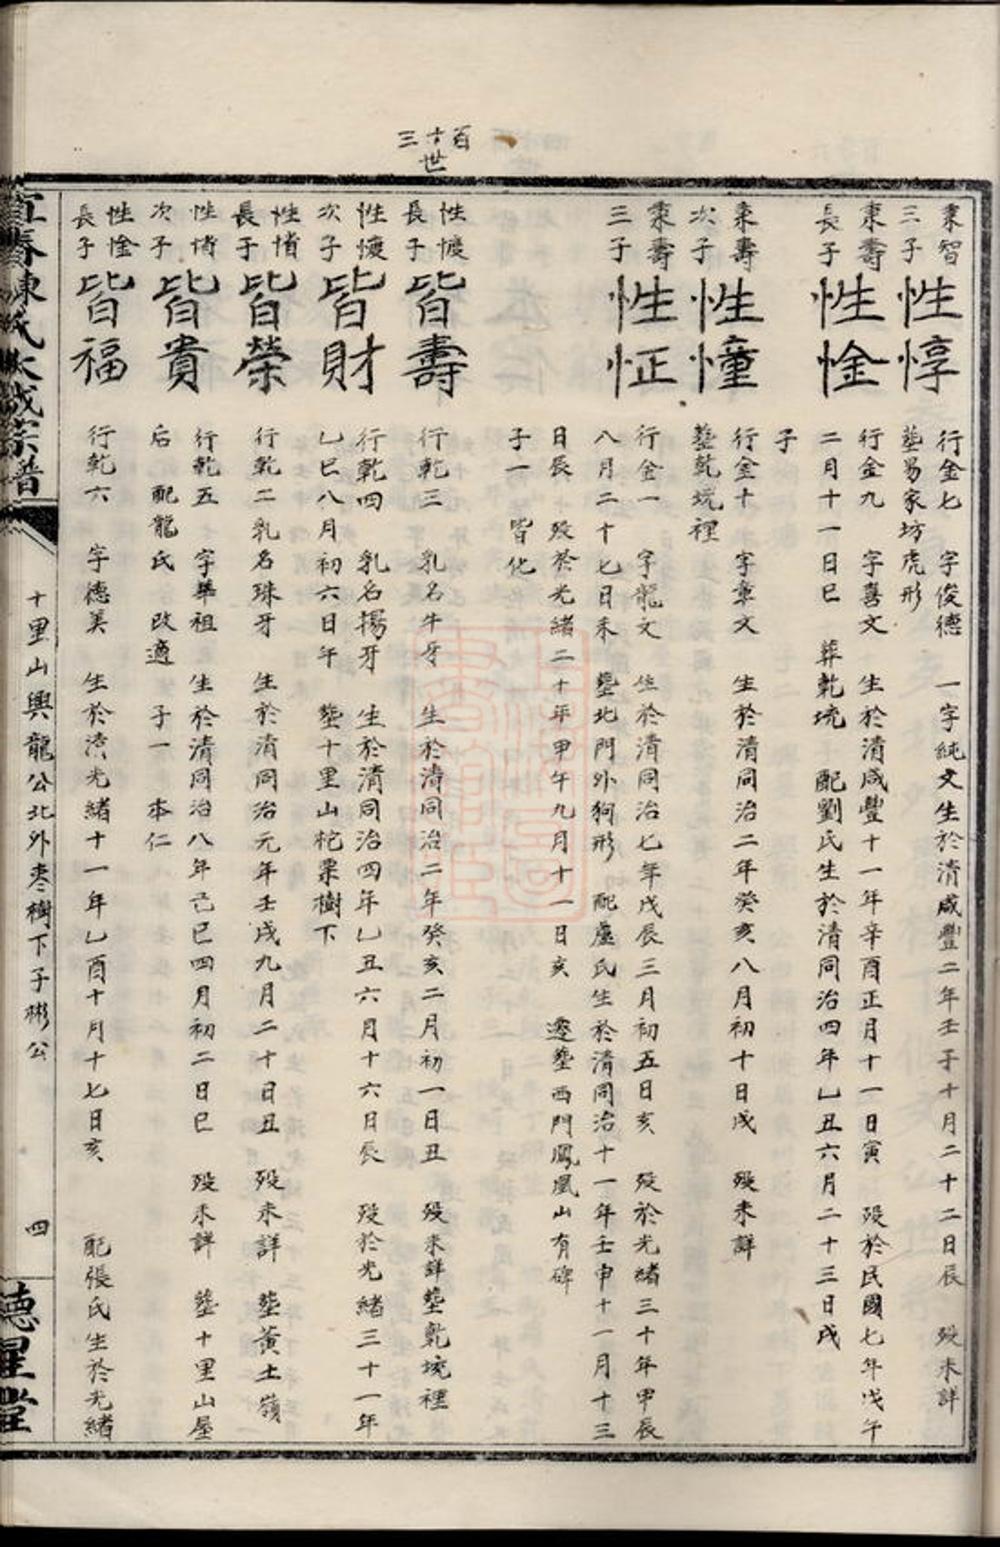 百十三世
秉智三子 性惇 行金七 字俊德 一字純文生於清咸豐二年壬子十月二十二日辰 歿未詳
塟易家坊虎形
秉壽長子 性金 行金九 字喜文 生於清咸豐十一年辛酉正月十一日寅 歿於民國七年戊午
二月十一日巳 葬乾塊 配劉氏生於清同治四年乙丑六月二十三日戌
子
秉壽次子 性憧 行金十 字章文 生於清同治二年癸亥八月初十日戌 歿未詳
塟乾塊裡
秉壽三子 性怔 行金一 字龍文 生於清同治七年戊辰三月初五日亥 歿於光緒三十年甲辰
八月二十七日未 塟北門外狗形 配盧氏生於清同治十一年壬申十一月十三
日辰 歿於光緒二十年甲午九月十一日亥 遷塟西門鳳凰山有碑
子一 皆化
性懷長子 皆壽 行乾三 乳名牛牙 生於清同治二年癸亥二月初一日丑 歿未詳塟乾塊裡
性懷次子 皆財 行乾四 乳名揚牙 生於清同治四年乙丑六月十六日辰 歿於光緒三十一年
乙巳八月初六日午 塟十里山枇栗樹下
長子 皆榮 行乾二乳名珠牙 生於清同治元年壬戌九月二十日丑 歿未詳 塟黃土嶺
次子 皆貴 行乾五 字華祖 生於清同治八年己巳四月初二日巳 歿未詳 塟十里山屋
后 配龍氏 改適 子一 本仁
長子 皆福 行乾六 字德美 生於清光緒十一年乙酉十月十七日亥 配張氏生於光緒
宜春陳氏大成宗譜
十里山興龍公北外棗樹下子彬公
四
德星堂